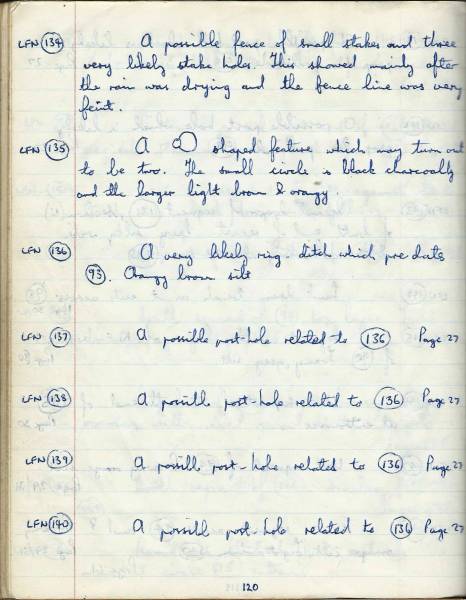 LFN (134) A possible fence of small stakes and three
very likely stake holes. This showed mainly after
the rain was drying and the fence line was very
feint.
LFN (135) A shaped feature which may turn out
to be two. The small circle is black charcoally
and the larger light brown & orangy.
LFN (136) A very likely ring-ditch which pre dates
(93). Orangy brown silt
LFN (137) A possible post-hole related to (136) Page 27
LFN (138) A possible post-hole related to (136) Page 27
LFN (139) A possible post-hole related to (136) Page 27
LFN (140) A possible post-hole related to (136) Page 27
120